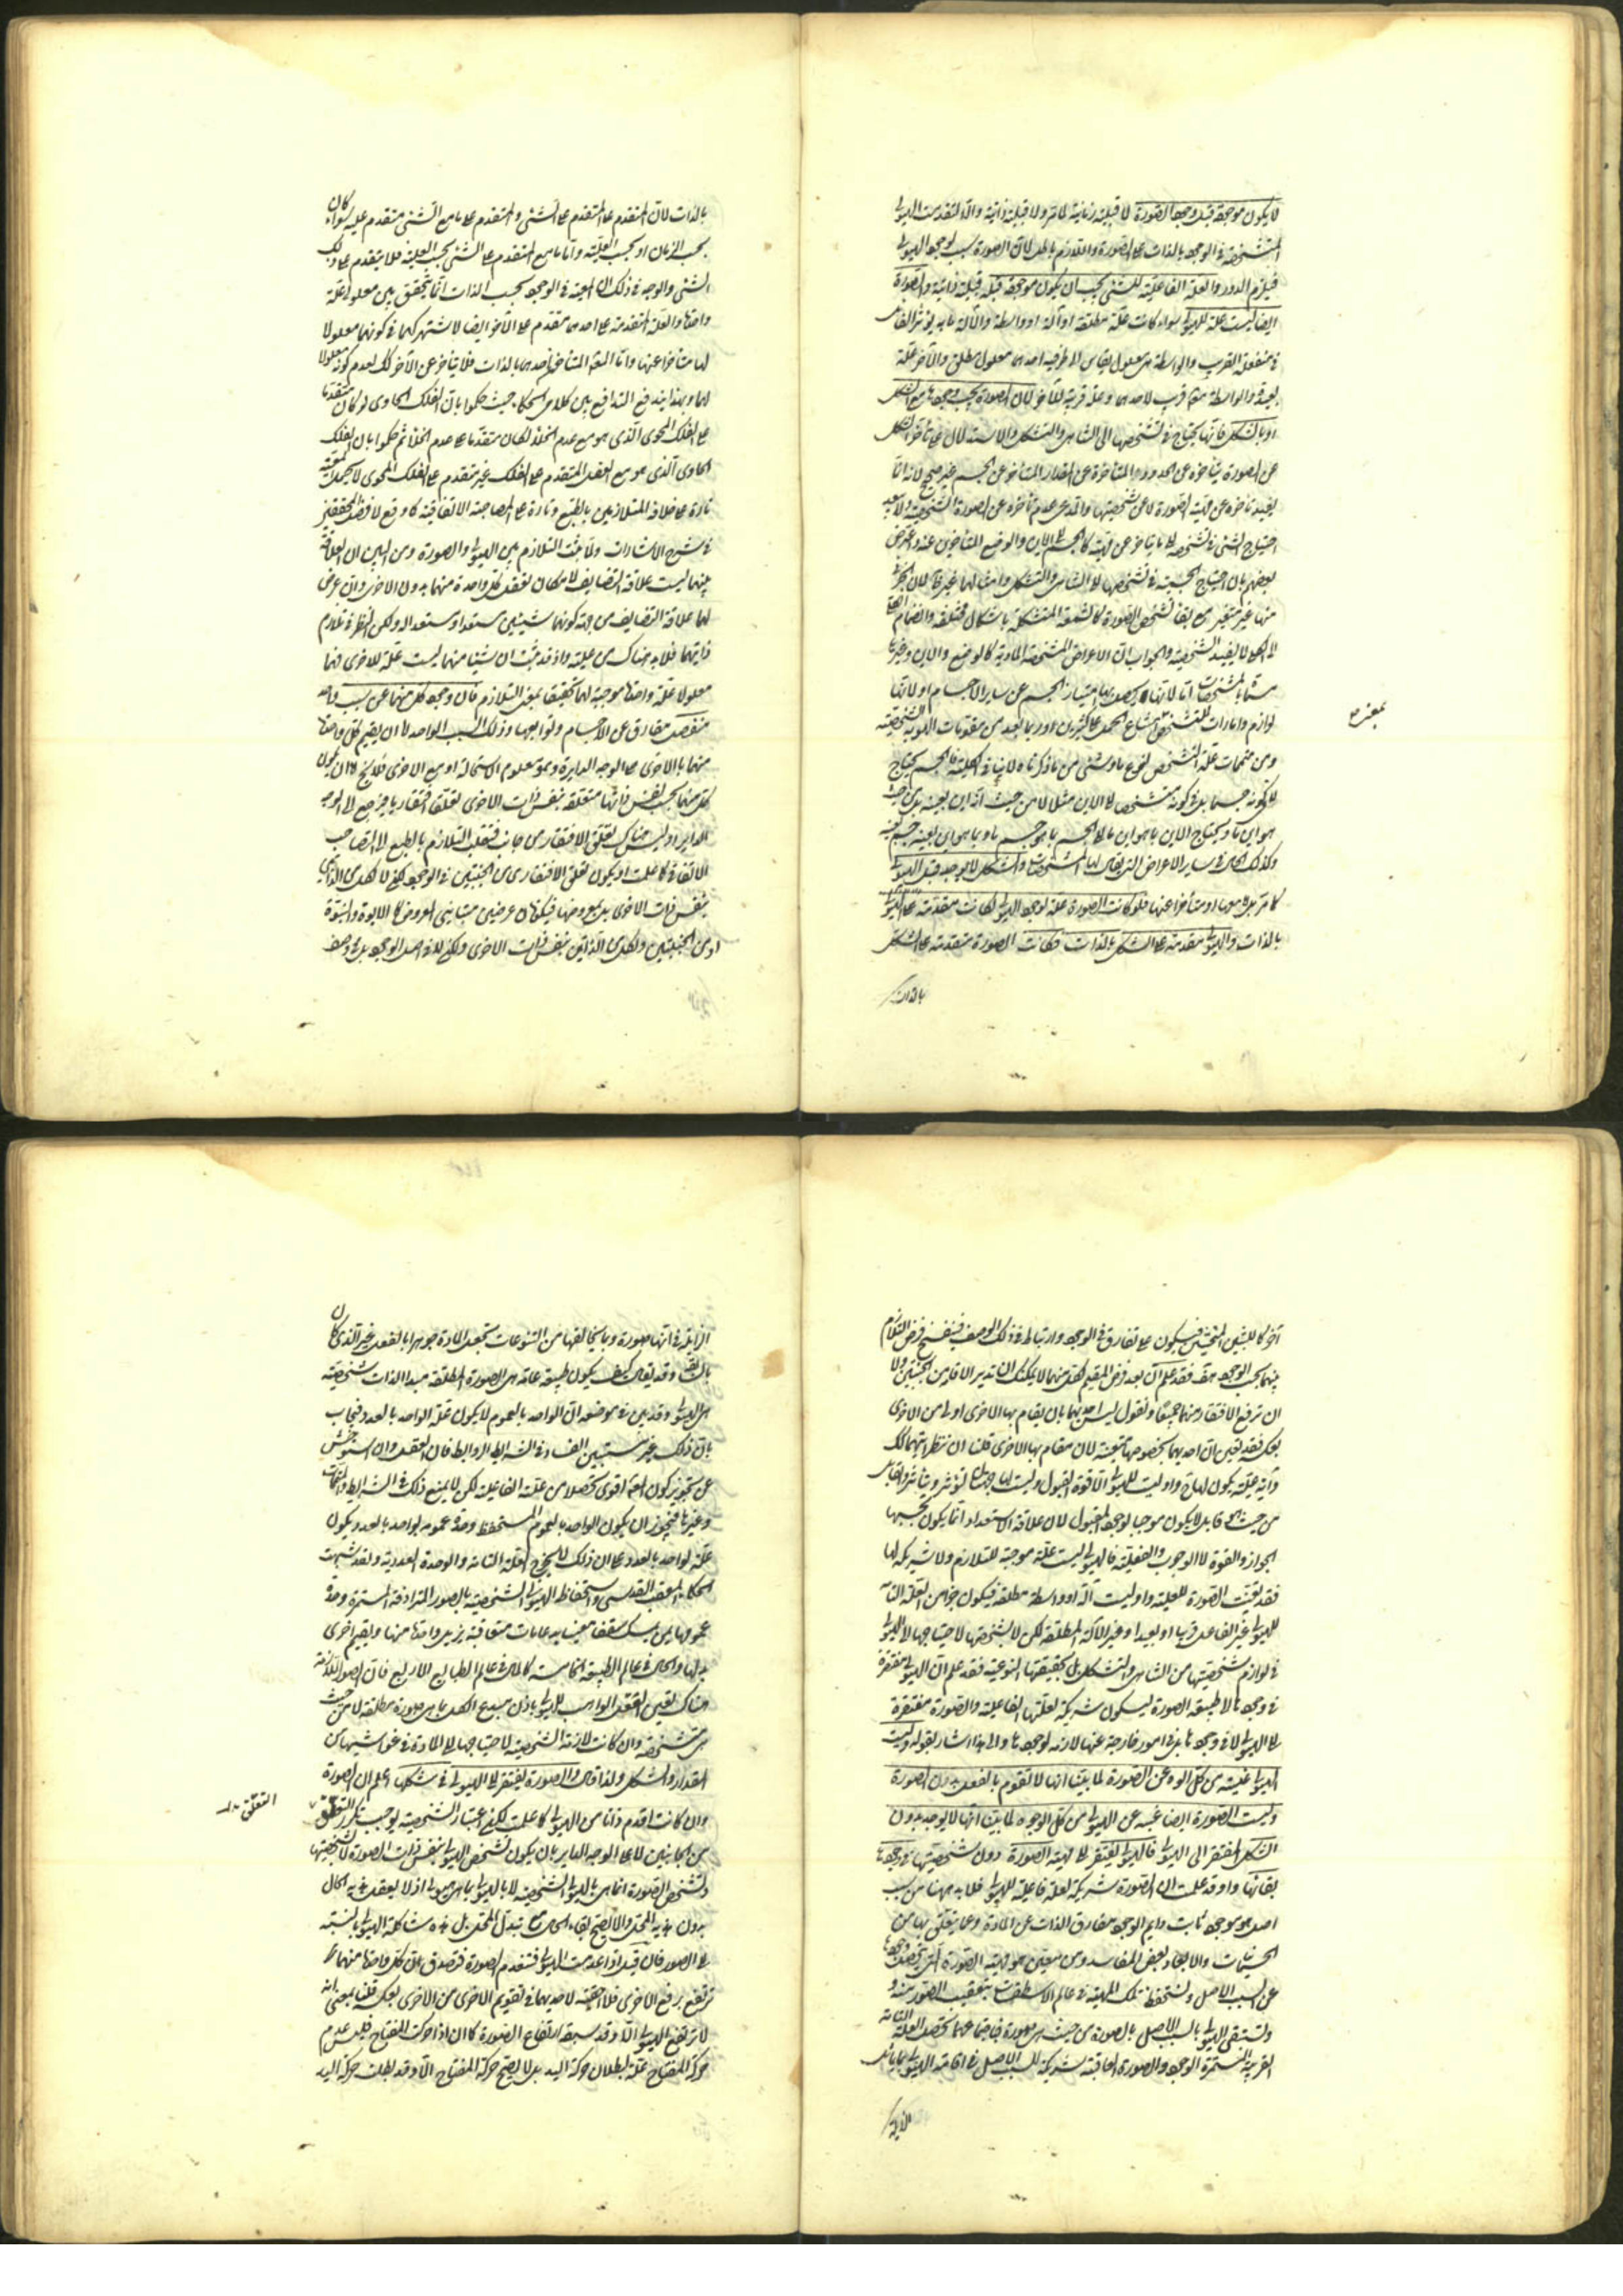 لا يكون موجودة قبل وجود الصورة لا قبلية زمانية لما مر ولا قبلية ذاتية والا لتقدمت الهيولى
المتشخصة في الوجود بالذات على الصورة واللازم باطل لان الصورة سبب لوجود الهيولى
فيلزم الدور والعلة الفاعلية للشئ يجب ان يكون موجودة قبله قبلية ذاتية والصورة
ايضا ليست علة للهيولى سواء كانت علة مطلقة او آلة او واسطة والآلة ما به يؤثر الفاعل
في منفعله القريب والواسطة هي معلول يقاس الى طرفيه احدهما معلول مطلق والآخر علة
بعيدة والواسطة معلول قريب لاحدهما وعلة قريبة للآخر لان الصورة يجب وجودها مع الشكل
او بالشكل فانها يحتاج في تشخصها الى التناهي والتشكل والاستدلال على تأخر الشكل
عن الصورة بتأخره عن الحدود المتأخرة عن المقدار المتأخر عن الجسم غير صحيح لانه انما
يفيد تأخره عن مهية الصورة لا عن شخصيتها والمدعى عدم تأخره عن الصورة الشخصية ولا بعد
احتياج الشئ في تشخصه الى ما يتأخر عن مهيته كالجسم الى الاين والوضع المتأخرين عنه واعترض
بعضهم بان احتياج الجسمية في تشخصها الى التناهي والتشكل وامثالها غير لان الجزئي
منها غير متغير مع بقاء تشخص الصورة كالشمعة المتشكلة باشكال مختلفة وانضمام الكلي
الى الكلي لا يفيد الشخصية والجواب ان الاعراض المشخصة المادية كالوضع والاين وغيرها
مسماة بالمشخصات اما لانها يحصل بها امتياز الجسم عن ساير الاجسام او لانها
لوازم وامارات للتشخص
ومن متممات علة التشخص لنوع مادي شئ من ما ذكرناه لا ينافي الكلية فالجسم يحتاج
لا في كونه جسما بل في كونه متشخصا الى الاين مثلا لا من حيث انه اين بعينه بل من حيث
هو اين ما ويحتاج الاين بما هو اين ما الى الجسم بما هو جسم ما وبما هو اين بعينه الى جسم بعينه
وكذلك الحال في ساير الاعراض التي يقال لها المشخصات والشكل لا يوجد قبل الهيولى
كما مر بل معها او متأخرا عنها فلو كانت الصورة علة لوجود الهيولى لكانت متقدمة على الهيولى
بالذات والهيولى متقدمة على الشكل بالذات فكانت الصورة متقدمة على الشكل
بالذات
بالذات لان المتقدم على المتقدم على الشئ والمتقدم على ما مع الشئ متقدم عليه سواء كان
بحسب الزمان او بحسب العلية واما ما مع المتقدم على الشئ بحسب العلية فلا يتقدم على ذلك
الشئ والوجه في ذلك ان المعية في الوجود بحسب الذات انما يتحقق بين معلولي علة
واحدة والعلة المتقدمة على احدهما متقدم على الآخر ايضا لاشتراكهما في كونهما معلولا
لها متأخرا عنها واما العلة المتأخرة احدهما بالذات فلا يتأخر عن الآخر كذلك لعدم كونه معلولا
لها وبهذا يندفع التدافع بين كلام الحكماء حيث حكموا بان الفلك الحاوي لو كان متقدما
على الفلك المحوي الذي هو مع عدم الخلاء لكان متقدما على عدم الخلاء ثم حكموا بان الفلك
الحاوي الذي هو مع العقل المتقدم على الفلك غير متقدم على الفلك المحوي
تارة على علاقة المتلازمين بالطبع وتارة على المصاحبة الاتفاقية كما وقع لافضل المحققين
في شرح الاشارات ولما ثبت التلازم بين الهيولى والصورة ومن البين ان العلاقة
بينهما ليست علاقة التضايف لامكان تعقل كل واحدة منهما بدون الاخرى وان عرض
لهما علاقة التضايف من جهة كونهما شيئين مستعد ومستعد له ولكن النظر في تلازم
ذاتيهما فلا بد هناك من علية واذ قد ثبت ان شيئا منهما ليست علة للاخرى فهما
معلولا علة واحدة موجبة لهما تحقيقا بمعنى التلازم فان وجود كل منهما عن سبب واحد
منفصل مفارق عن الاجسام وتوابعها وذلك السبب الواحد اما ان يقيم كل واحدة
منهما بالاخرى على الوجه الدايرة وهو معلوم الاستحالة او مع الاخرى فلا يخ اما ان يكون
كل منهما بحسب نفس ذاتها متعلقة بنفس ذات الاخرى تعلقا افتقاريا فيرجع الى الوجه
الداير او ليس هناك تعلق الافتقار من جانب فينقلب التلازم بالطبع الى التصاحب
الاتفاقي كما علمت او يكون تعلق الافتقار من الجنبتين في الوجود لكن لا لكل من الذاتين
بنفس ذات الاخرى بل بمعروضها فيكونان عرضيين متباينى المعروض كالابوة والبنوة
او من الجنبتين ولكل من الذاتين بنفس ذات الاخرى ولكن لا في اصل الوجود بل في وصف
آخر كاللبنتين المنحنيتين فيكون على تفارق في الوجود وارتباط في ذلك الوصف فينفسخ فرض التلازم
بينهما بحسب الوجود هف فقد علم ان بعد فرض المقيم لكل منهما لا يمكنك ان تدير الافتقار من الجنبتين ولا
ان ترفع الافتقار منهما جميعا ونقول ليس احديهما بان يقام بها الاخرى اولى من الاخرى
بعكسه فقد تعين ان احديهما بخصوصها متعينة لان يقام بها الاخرى فلنا ان ننظر ايتهما لك
واية علية يكون لها واذ ليست للهيولى الا قوة القبول وليست لها جهتا تؤثر ويتأثر والقابل
من حيث هو قابل لا يكون موجبا لوجود المقبول لان علاقة الاستعداد انما يكون بحسبها
الجواز والقوة لا الوجوب والفعلية فالهيولى ليست علة موجبة للتلازم ولا شريكة لها
فقد تعينت الصورة للعلية واذ ليست آلة او واسطة مطلقة فيكون جزءا من العلة التامة
للهيولى غير الفاعل قريبا او بعيدا وغير الآلة المطلقة لكن لا بشخصيتها لاحتياجها الى الهيولى
في لوازم شخصيتها من التناهي والتشكل بل بحقيقتها النوعية فقد علم ان الهيولى مفتقرة
في وجودها الى طبيعة الصورة ليكون شريكة لعلتها الفاعلية والصورة مفتقرة
الى الهيولى لا في وجودها بل في امور خارجة عنها لازمة لوجودها والى هذا اشار بقوله وليست
الهيولى غنية من كل الوجوه عن الصورة لما بينا انها لا تقوم بالفعل بدون الصورة
وليست الصورة ايضا غنية عن الهيولى من كل الوجوه لما بينا انها لا يوجد بدون
الشكل المفتقر الى الهيولى فالهيولى يفتقر الى مهية الصورة دون شخصيتها في وجودها
بقائها واذ قد علمت ان الصورة شريكة لعلة فاعلية للهيولى فلا بد ههنا من سبب
اصل هو موجود ثابت دايم الوجود مفارق الذات عن المادة وعما يتعلق بها من
الجسمانيات والابعاد لبعض المفاسد ومن معين هو مهية الصورة التي يتحصل وجودها
عن السبب الاصل ويستحفظ تلك المهية في عالم الاسطقسات بتعقيب الصور منه
وتستبقى الهيولى بالسبب الاصل بالصورة من حيث هي صورة فباجتماعهما تحصل العلة التامة
القريبة المستمرة الوجود والصورة العاقبة شريكة للسبب الاصل في اقامة الهيولى بما يماثل
الزايلة
الزايلة في انها صورة وبما يخالفها من التنوعات تجعل المادة جوهرا بالفعل غير الذي كان
بالسابق وقد يقال كيف يكون طبيعة عامة هي الصورة المطلقة مبدأ لذات شخصية
هي الهيولى وقد بين في موضعه ان الواحد بالعموم لا يكون علة للواحد بالعدد فيجاب
بان ذلك غير مستبين الفساد في الشرايط والروابط فان العقل وان استوحش
عن تجويز كون المعلول اقوى تحصلا من علته الفاعلية لكن لا يمنع ذلك في الشرايط والمتممات
وغيرها فيجوز ان يكون الواحد بالعموم المستحفظ وحدة عمومه لواحد بالعدد يكون
علة لواحد بالعدد على ان ذلك لا يخرج العلة التامة والوحدة العددية ولقد شبهت
الحكماء العقل القدسي واستحفاظ الهيولى الشخصية بالصور المترادفة المستمرة وحدة
عمومها بمن يمسك سقفا معينا بدعامات متعاقبة يزيل واحدة منها ويقيم اخرى
بدلها والحال في عالم الطبيعة الخامسة كالحال في عالم الطبايع الاربع فان الصور اللازمة
هناك تعين العقل الواهب للهيولى باذن مبدع الكل بما هي صورة مطلقة لا من حيث
هي متشخصة وان كانت لازمة الشخصية لاحتياجها الى المادة في غواشيها من
المقدار والشكل ولذا قال والصورة يفتقر الى الهيولى في شكلها اعلم ان الصورة
وان كانت اقدم ذاتا من الهيولى كما علمت لكن اعتبار الشخصية يوجب تكرر التعلق
من الجانبين لا على الوجه الداير بان يكون تشخص الهيولى بنفس ذات الصورة لا بشخصيتها
وتشخص الصورة انما هي بالهيولى الشخصية لا بالهيولى بما هي هيولى اذ لا يعقل هذية الحال
بدون هذية المحل والا لصح بقاء الحال مع تبدل المحل بل هذه شاكلة الهيولى بالنسبة
الى الصور فان قيل اذا عدمت الهيولى فتنعدم الصورة فيصدق ان كل واحدة منهما
ترتفع برفع الاخرى فلا احقية لاحديهما في تقويم الاخرى من الاخرى بعكسه قلنا بمعنى انه
لا ترتفع الهيولى الا وقد سبقه ارتفاع الصورة كما ان اذا حركت المفتاح فليس عدم
حركة المفتاح علة لبطلان حركة اليد بل لا يصح حركة المفتاح الا وقد بطلت حركة اليد
التعلق